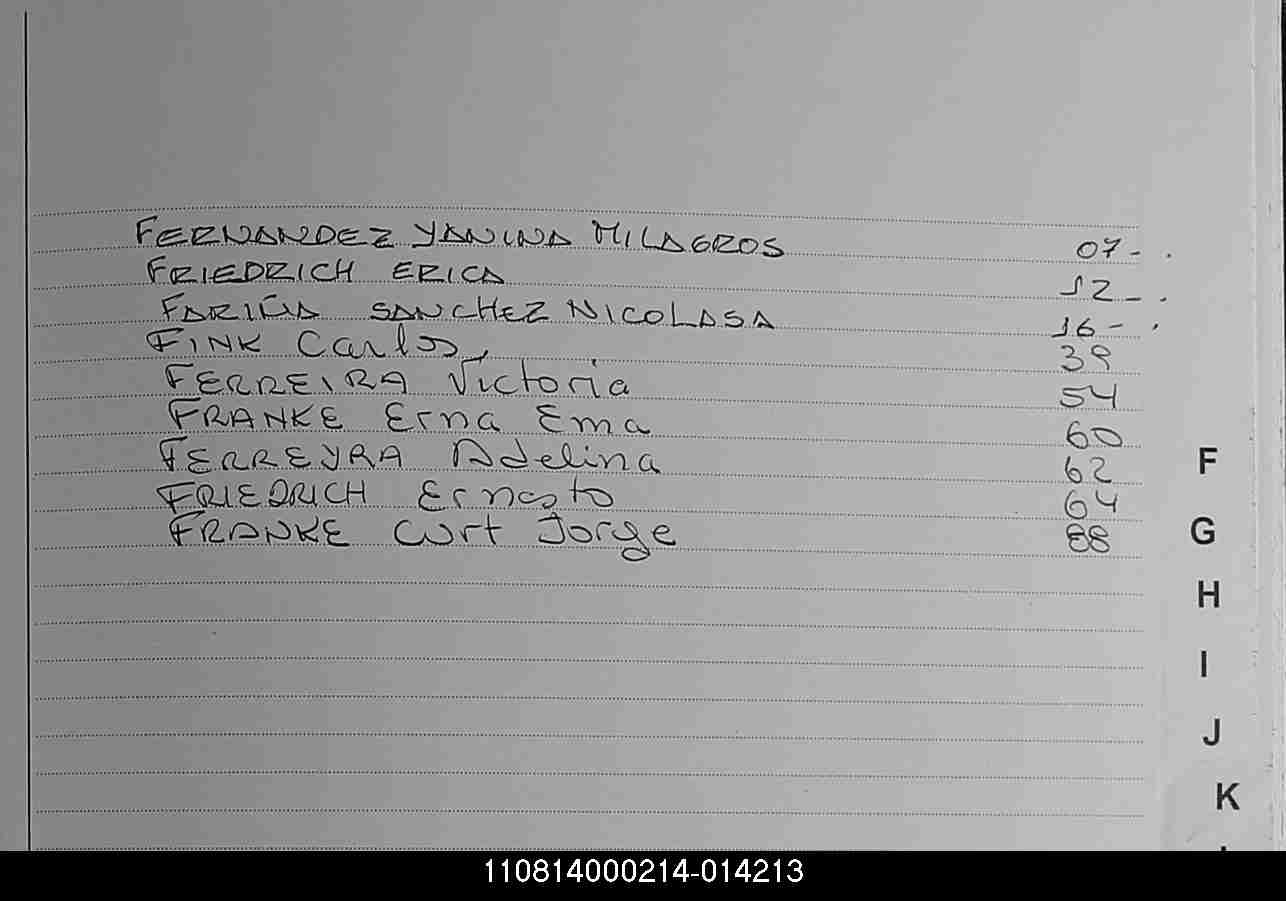 FERNANDEZ YANINA MILAGROS 07-.
FRIEDRICH ERICA 12-.
FARIÑA SANCHEZ NICOLASA 16-.
FINK Carlos, 39
FERREIRA Victoria 54
FRANKE Erna Ema 60
FERREYRA Adelina 62
FRIEDRICH Ernesto 64
FRANKE Curt Jorge 88
F
G
H
I
J
K
110814000214-014213